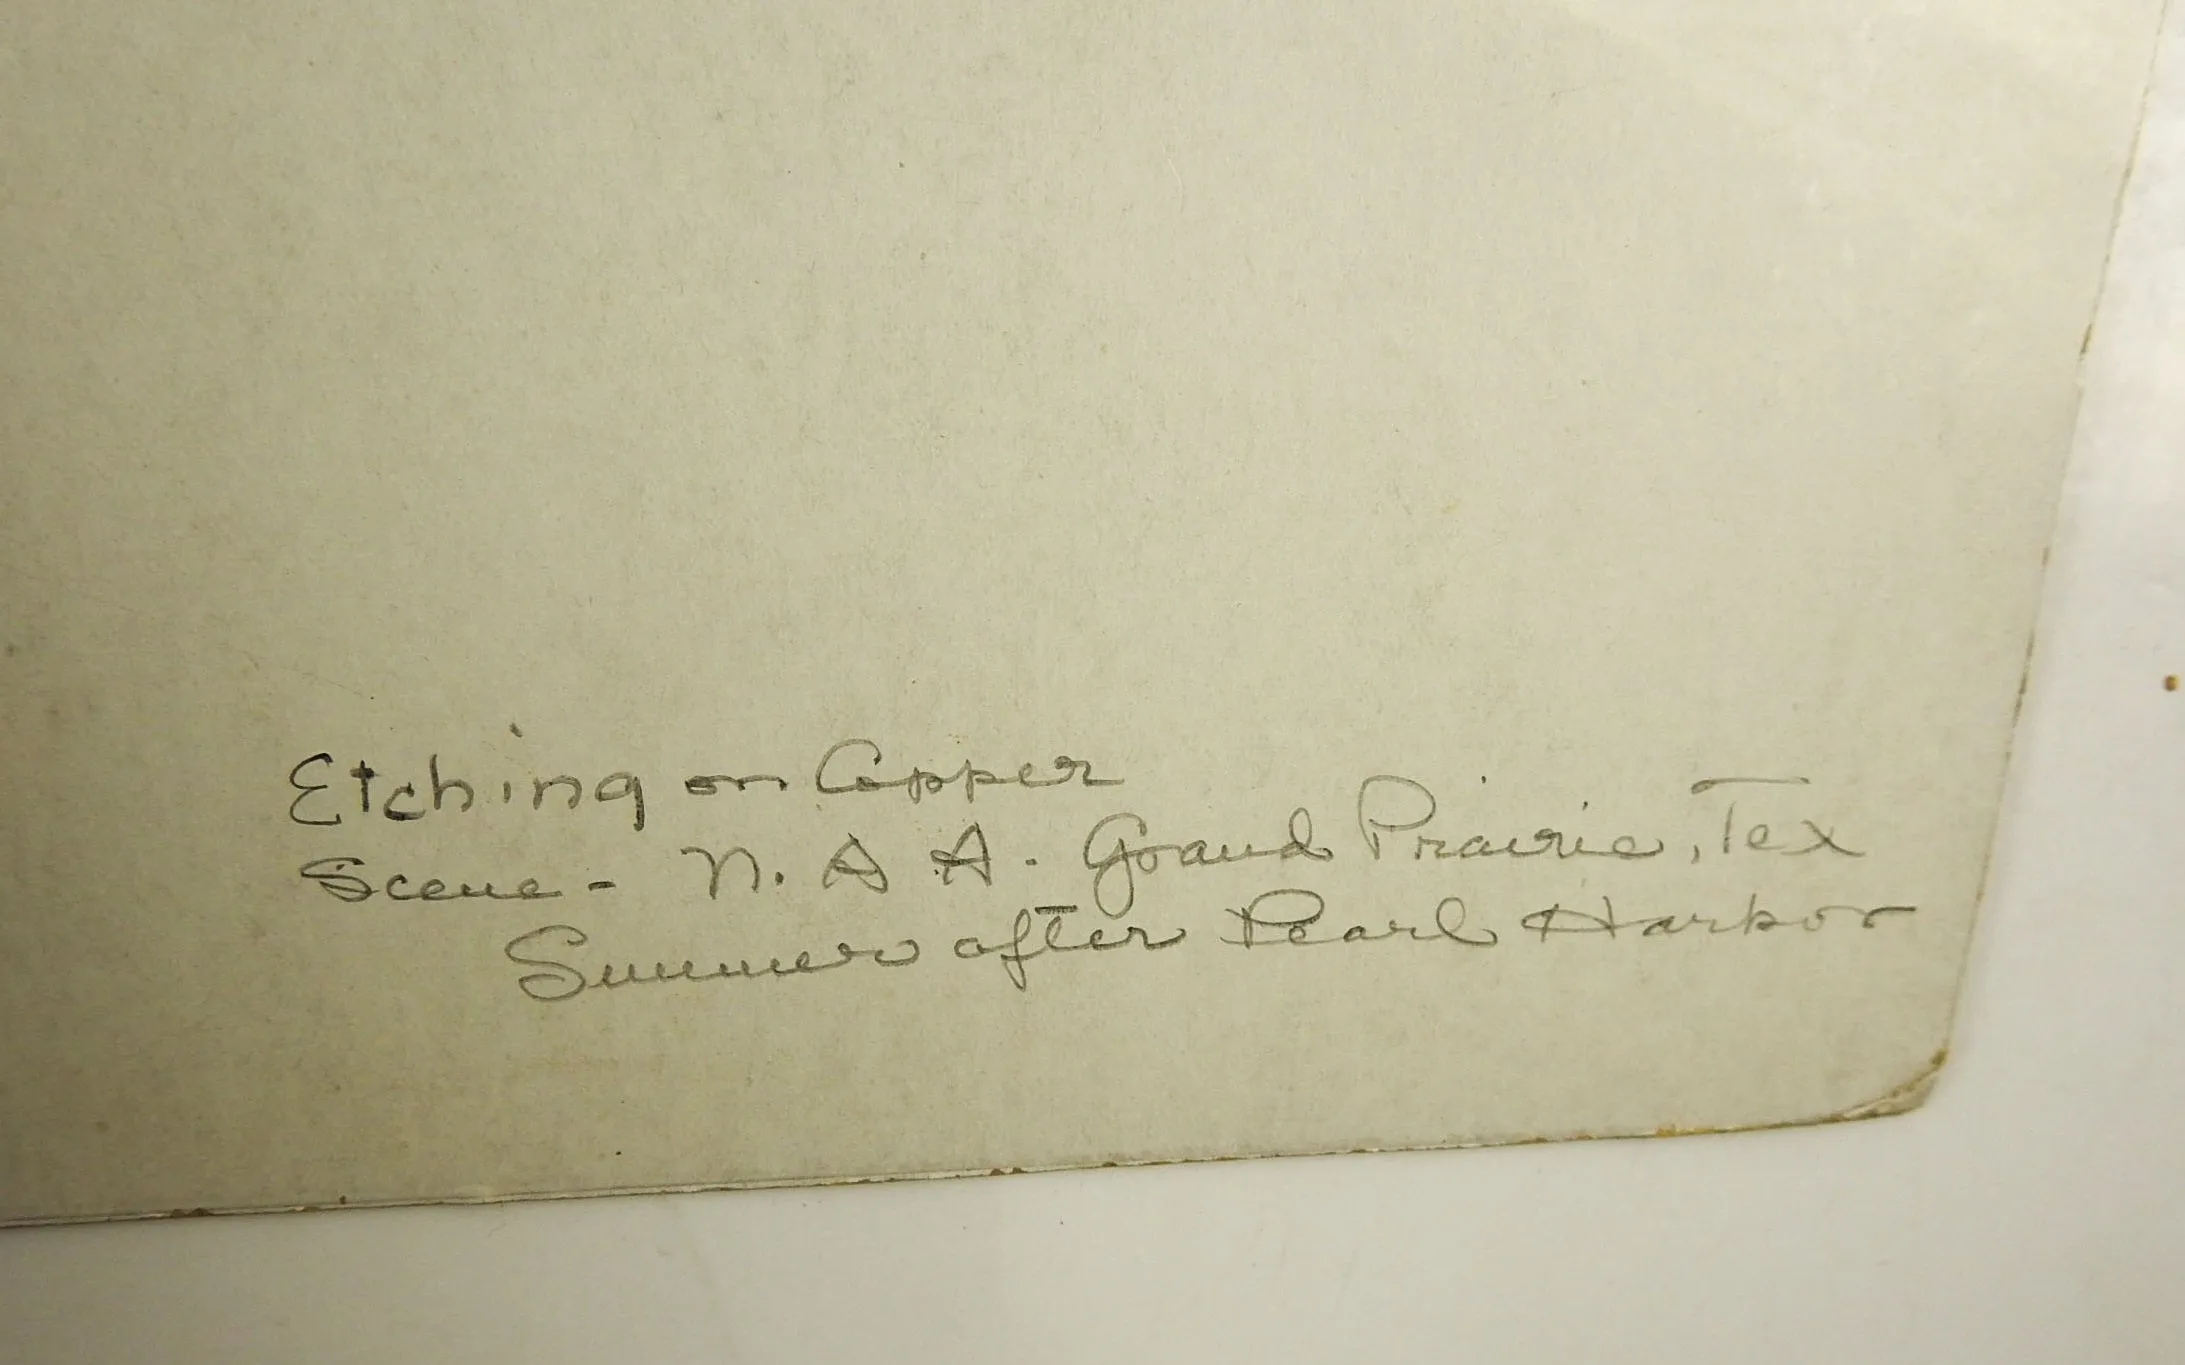 Etching on Copper
Scene - N. A A. Grand Prairie, Tex
Summer after Pearl Harbor